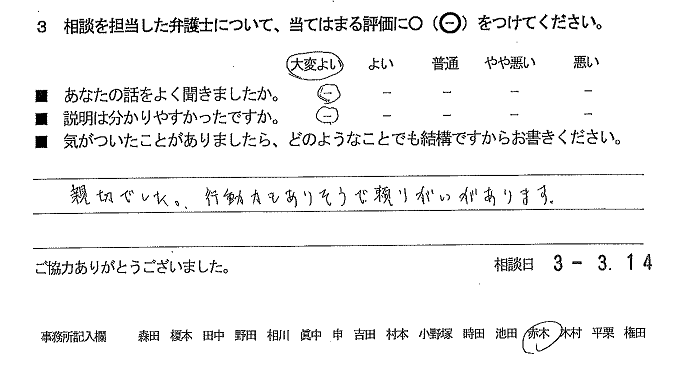 3 相談を担当した弁護士について、当てはまる評価に○（㊀）をつけてください。
大変よい よい 普通 やや悪い 悪い
■ あなたの話をよく聞きましたか。 － － － － －
■ 説明は分かりやすかったですか。 － － － － －
■ 気がついたことがありましたら、どのようなことでも結構ですからお書きください。
親切でした。行動力もありそうで頼りがいがあります。
ご協力ありがとうございました。 相談日 3－3.14
事務所記入欄 森田 榎本 田中 野田 相川 眞中 申 吉田 村本 小野塚 時田 池田 赤木 木村 平栗 権田